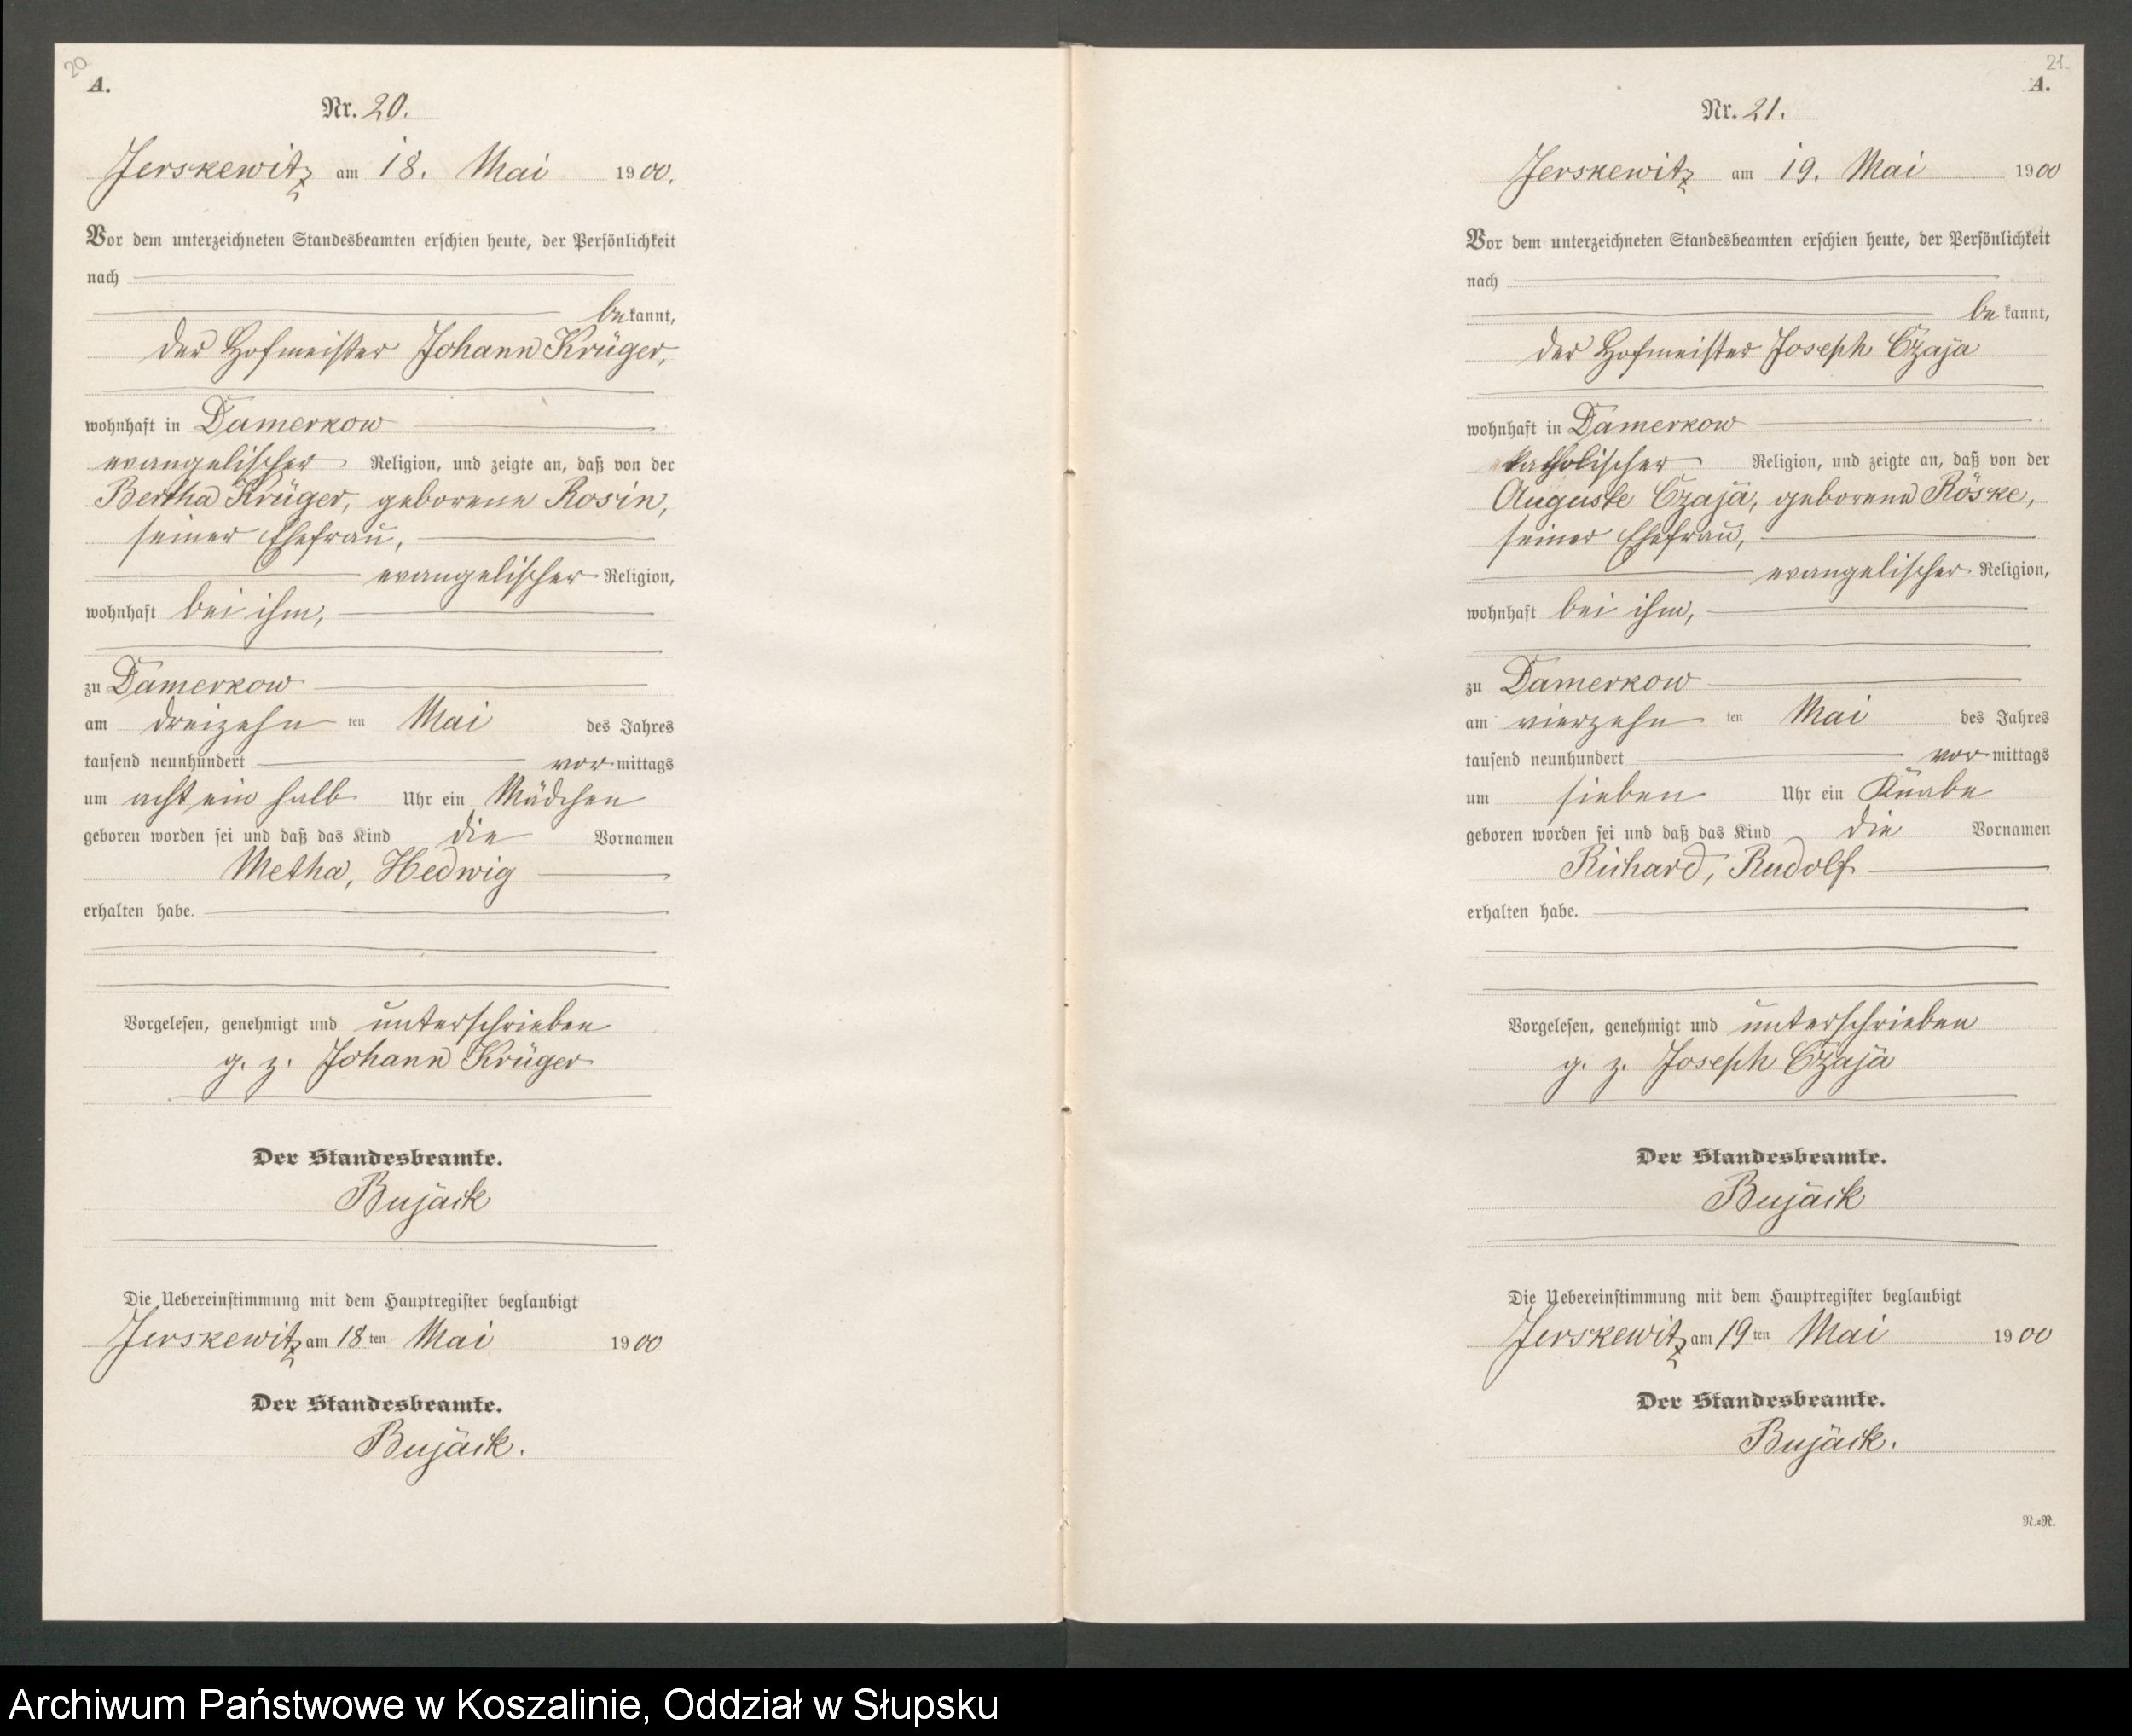 20
A.
Nr. 20.
Jerskewitz am 18. Mai 1900.
Vor dem unterzeichneten Standesbeamten erschien heute, der Persönlichkeit
nach
bekannt,
der Hofmeister Johann Krüger,
wohnhaft in Damerkow
evangelischer Religion, und zeigte an, daß von der
Bertha Krüger, geborene Rosin,
seiner Ehefrau,
evangelischer Religion,
wohnhaft bei ihm,
zu Damerkow
am dreizehn ten Mai des Jahres
tausend neunhundert vormittags
um acht ein halb Uhr ein Mädchen
geboren worden sei und daß das Kind die Vornamen
Metha, Hedwig
erhalten habe.
Vorgelesen, genehmigt und unterschrieben
g. z. Johann Krüger
Der Standesbeamte.
Bujack
Die Uebereinstimmung mit dem Hauptregister beglaubigt
Jerskewitz am 18ten Mai 1900
Der Standesbeamte.
Bujack.
21.
A.
Nr. 21.
Jerskewitz am 19. Mai 1900
Vor dem unterzeichneten Standesbeamten erschien heute, der Persönlichkeit
nach
bekannt,
der Hofmeister Joseph Czaja
wohnhaft in Damerkow
katholischer Religion, und zeigte an, daß von der
Auguste Czaja, geborene Röske,
seiner Ehefrau,
evangelischer Religion,
wohnhaft bei ihm,
zu Damerkow
am vierzehn ten Mai des Jahres
tausend neunhundert vormittags
um sieben Uhr ein Knabe
geboren worden sei und daß das Kind die Vornamen
Richard, Rudolf
erhalten habe.
Vorgelesen, genehmigt und unterschrieben
g. z. Joseph Czaja
Der Standesbeamte.
Bujack
Die Uebereinstimmung mit dem Hauptregister beglaubigt
Jerskewitz am 19ten Mai 1900
Der Standesbeamte.
Bujack.
N.-R.
Archiwum Państwowe w Koszalinie, Oddział w Słupsku